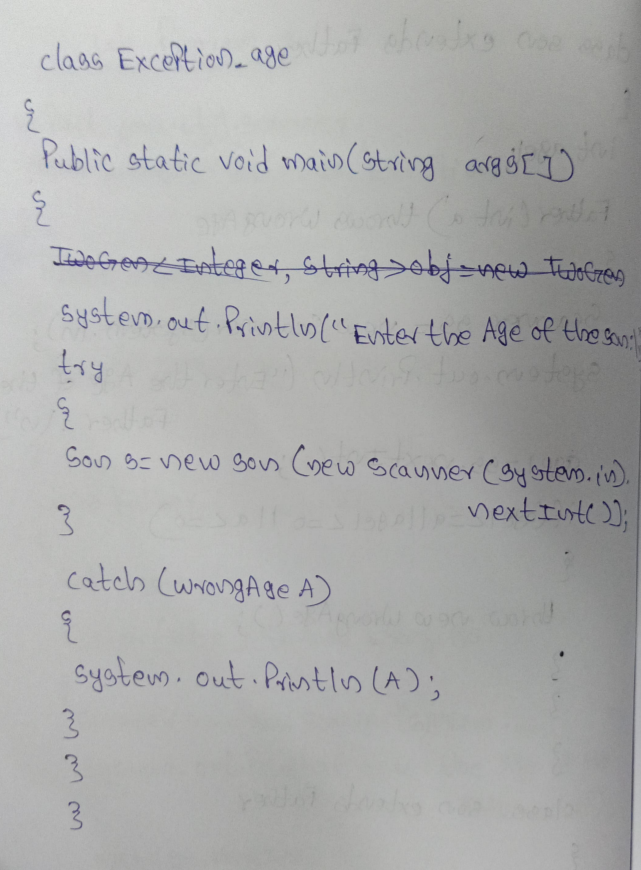 class Exception_age
{
Public static void main(string args[])
{
TwoGen<Integer, string>obj=new TwoGen
system.out.Println("Enter the Age of the son:
try
{
Son s=new son (new scanner (system.in).
nextInt());
}
catch (wrongAge A)
{
system.out.Println(A);
}
}
}